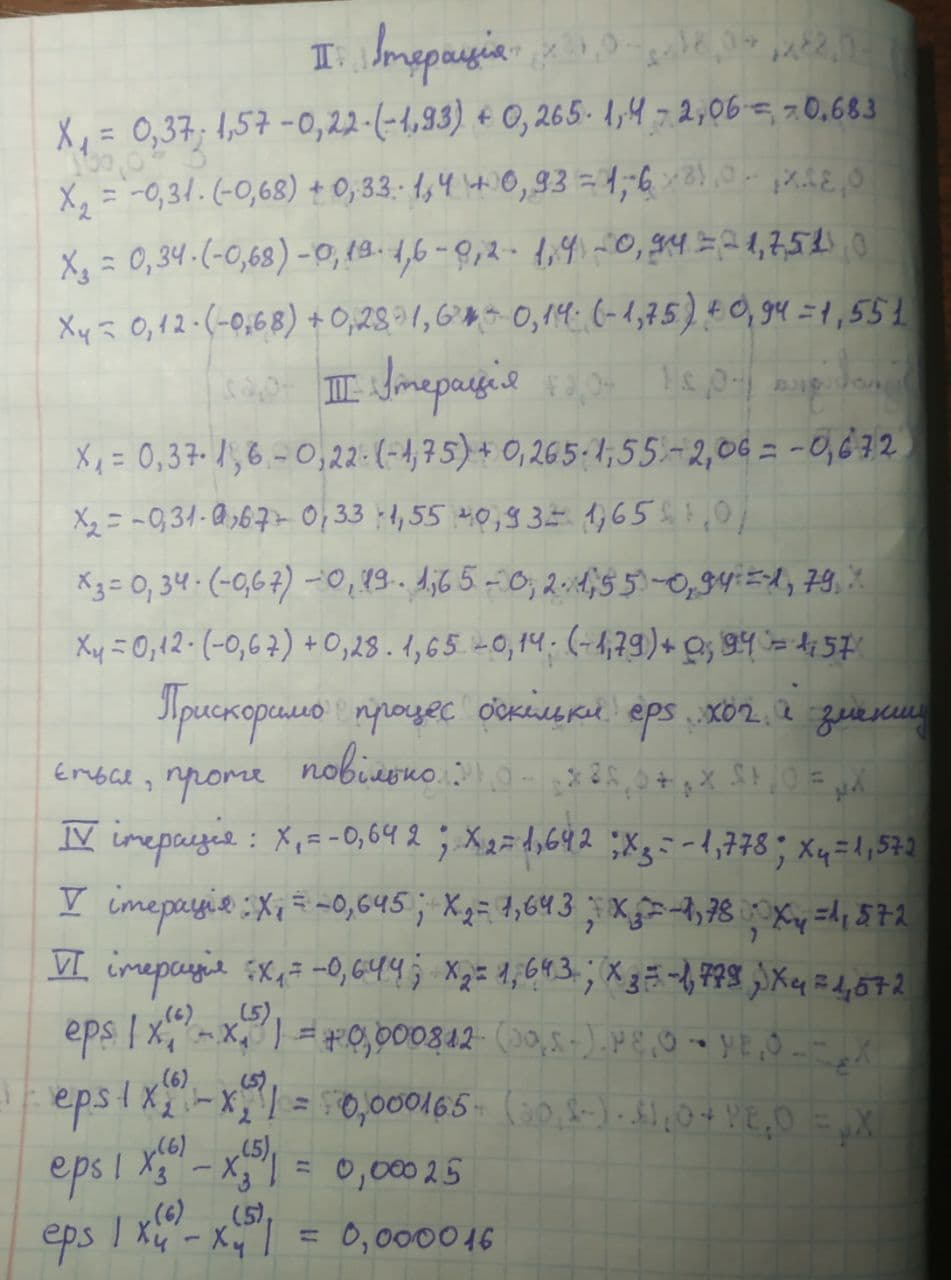 II Ітерація
X₁ = 0,37 · 1,57 - 0,22 · (-1,93) + 0,265 · 1,4 - 2,06 = -0.683
X₂ = -0,31 · (-0,68) + 0,33 · 1,4 + 0,93 = 1,6
X₃ = 0,34 · (-0,68) - 0,19 · 1,6 - 0,2 · 1,4 - 0,94 = -1,751
X₄ = 0,12 · (-0,68) + 0,28 · 1,6 - 0,14 · (-1,75) + 0,94 = 1,551
III Ітерація
X₁ = 0,37 · 1,6 - 0,22 · (-1,75) + 0,265 · 1,55 - 2,06 = -0,672
X₂ = -0,31 · 0,67 - 0,33 · 1,55 + 0,93 = 1,65
X₃ = 0,34 · (-0,67) - 0,19 · 1,65 - 0,2 · 1,55 - 0,94 = -1,79
X₄ = 0,12 · (-0,67) + 0,28 · 1,65 - 0,14 · (-1,79) + 0,94 = 1,57
Прискоримо процес оскільки eps хоч і зменшу
ється, проте повільно:
IV ітерація: X₁ = -0,642 ; X₂ = 1,642 ; X₃ = -1,778 ; X₄ = 1,572
V ітерація: X₁ = -0,645 ; X₂ = 1,643 ; X₃ = -1,78 ; X₄ = 1,572
VI ітерація: X₁ = -0,644 ; X₂ = 1,643 ; X₃ = -1,779 ; X₄ = 1,572
eps | X₁⁽⁶⁾ - X₁⁽⁵⁾ | = +0,000812
eps | X₂⁽⁶⁾ - X₂⁽⁵⁾ | = 0,000165
eps | X₃⁽⁶⁾ - X₃⁽⁵⁾ | = 0,00025
eps | X₄⁽⁶⁾ - X₄⁽⁵⁾ | = 0,000016